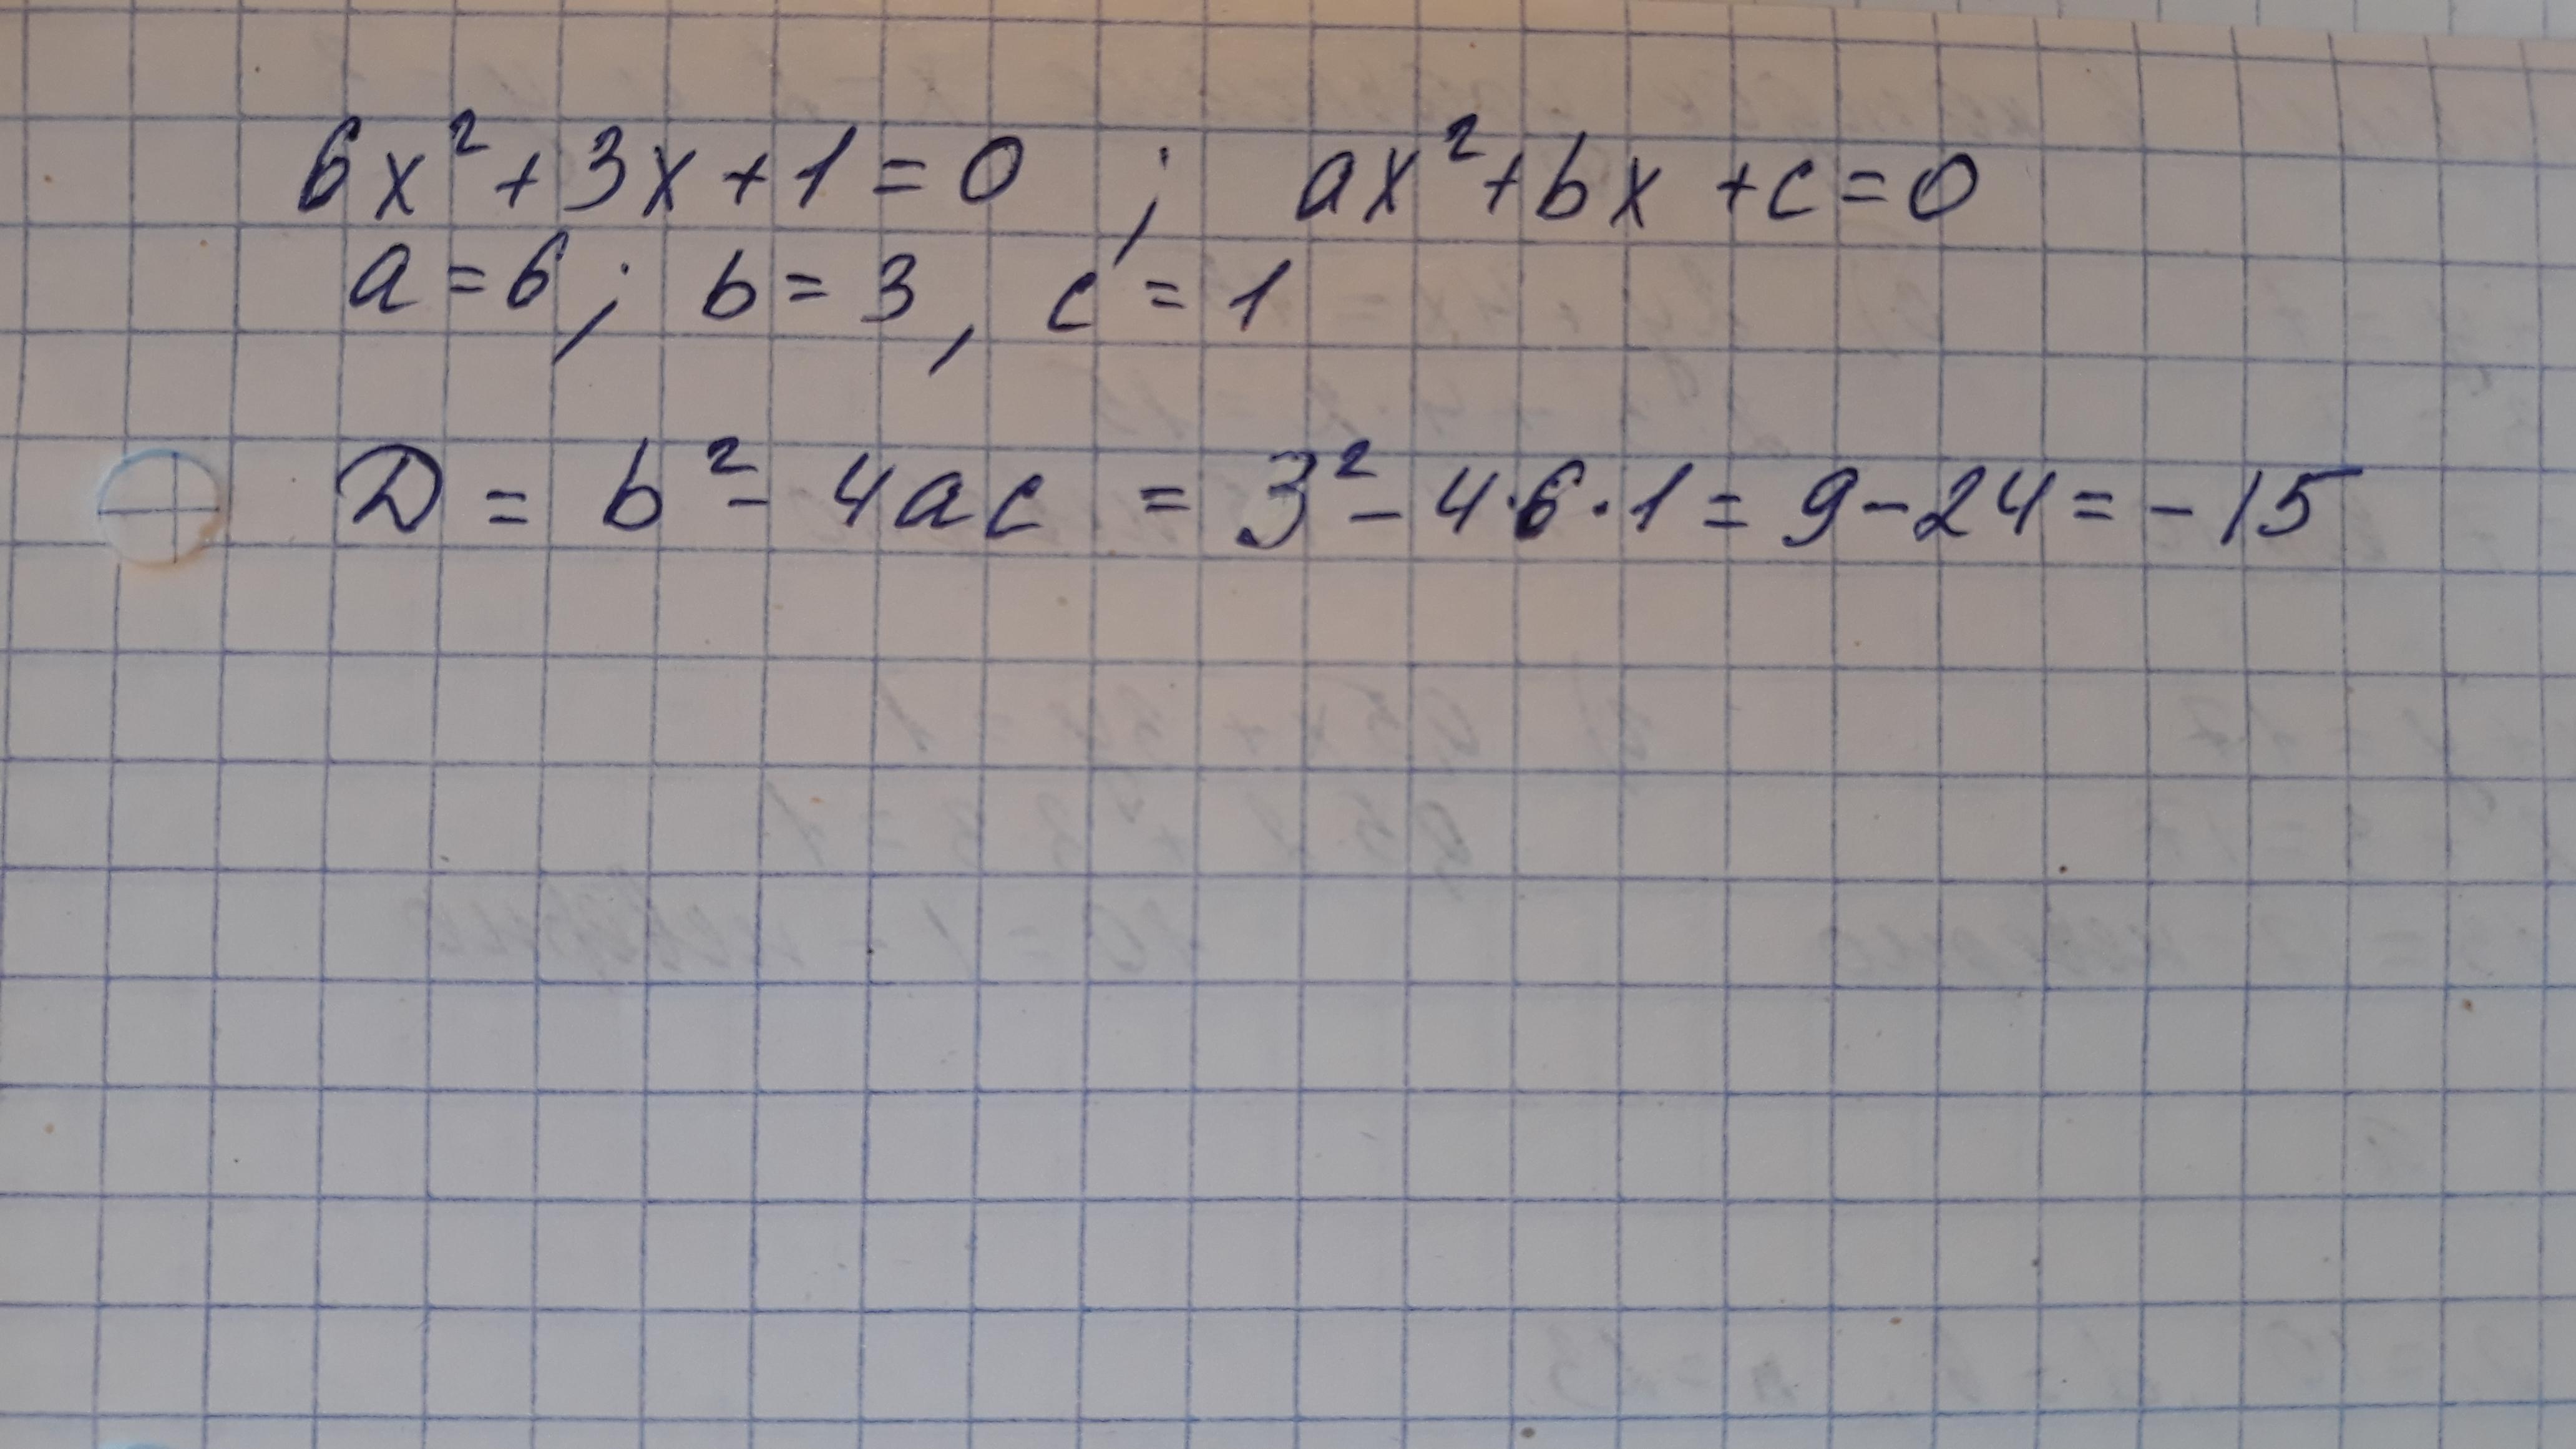 6x² + 3x + 1 = 0 ; ax² + bx + c = 0
a = 6 ; b = 3 , c = 1
D = b² - 4ac = 3² - 4·6·1 = 9 - 24 = - 15